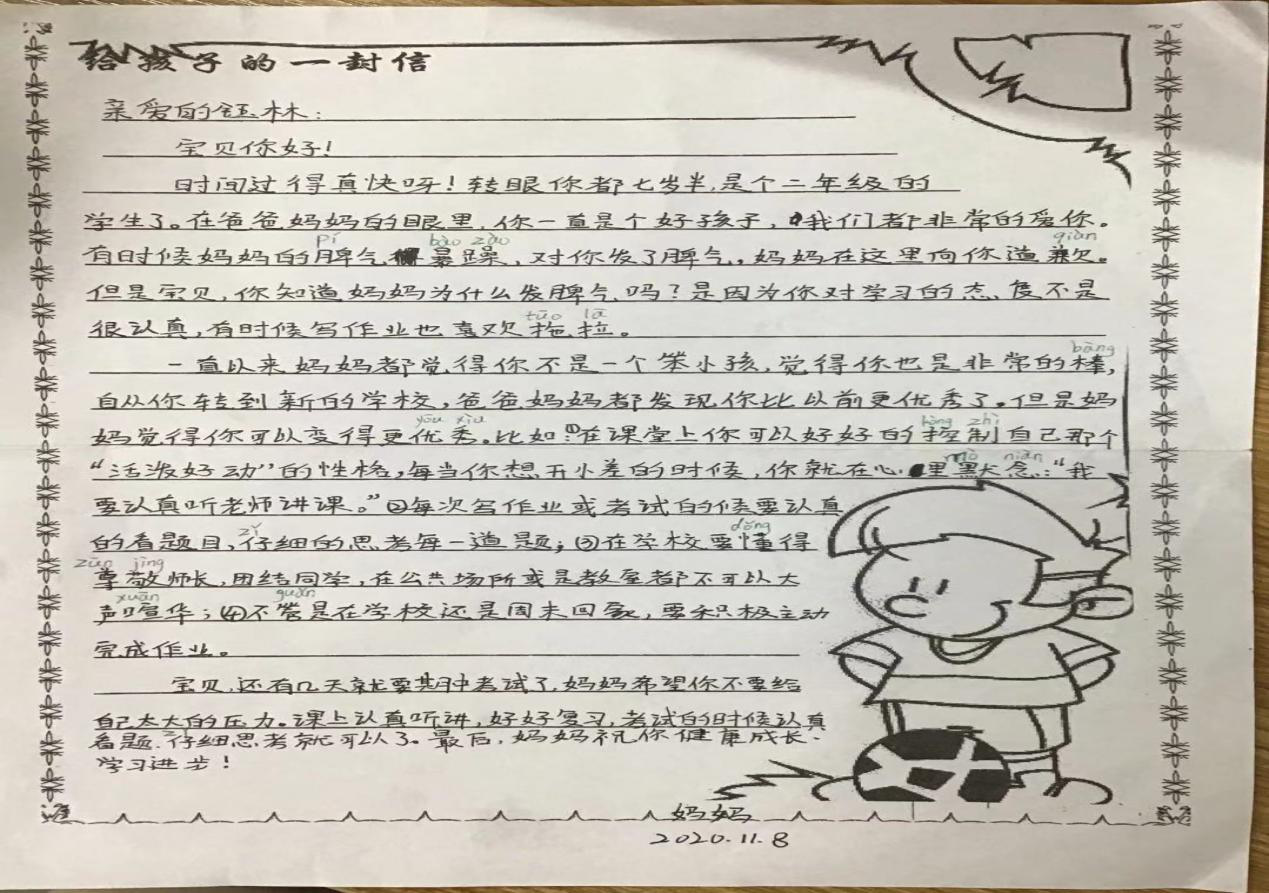 给孩子的一封信
亲爱的钰林：
宝贝你好！
时间过得真快呀！转眼你都七岁半，是个二年级的
学生了。在爸爸妈妈的眼里，你一直是个好孩子，我们都非常的爱你。
pí bào zào qiàn
有时候妈妈的脾气暴躁，对你发了脾气，妈妈在这里向你道歉。
但是宝贝，你知道妈妈为什么发脾气吗？是因为你对学习的态度不是
tuō lā
很认真，有时候写作业也喜欢拖拉。
bàng
一直以来妈妈都觉得你不是一个笨小孩，觉得你也是非常的棒，
自从你转到新的学校，爸爸妈妈都发现你比以前更优秀了。但是妈
yōu xiù kòng zhì
妈觉得你可以变得更优秀。比如：①在课堂上你可以好好的控制自己那个
mò niàn
“活泼好动”的性格，每当你想开小差的时候，你就在心里默念：“我
要认真听老师讲课。”②每次写作业或考试的候要认真
zǐ dǒng
的看题目，仔细的思考每一道题；③在学校要懂得
zūn jìng
尊敬师长，团结同学，在公共场所或是教室都不可以大
xuān guǎn
声喧华；④不管是在学校还是周末回家，要积极主动
完成作业。
宝贝，还有几天就要期中考试了，妈妈希望你不要给
自己太大的压力。课上认真听讲，好好复习，考试的时候认真
看题、仔细思考就可以了。最后，妈妈祝你健康成长、
学习进步！
妈妈
2020.11.8